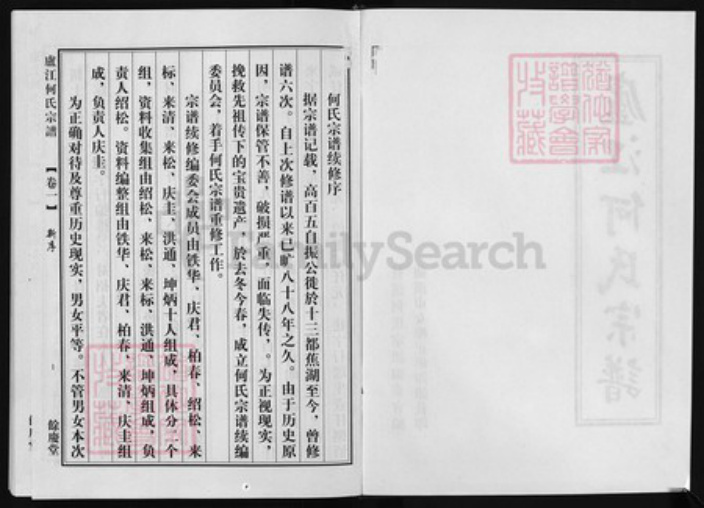 何氏宗谱续修序
据宗谱记载，高百五自振公徙於十三都蕉湖至今，曾修
谱六次。自上次修谱以来已旷八十八年之久。由于历史原
因，宗谱保管不善，破损严重，面临失传，。为正视现实，
挽救先祖传下的宝贵遗产，於去冬今春，成立何氏宗谱续编
委员会，着手何氏宗谱重修工作。
宗谱续修编委会成员由铁华、庆君、柏春、绍松、来
标、来清、来松、庆圭、洪通、坤炳十人组成，具体分二个
组，资料收集组由绍松、来松、来标、洪通、坤炳组成，负
责人绍松。资料编整组由铁华、庆君、柏春、来清、庆圭组
成，负责人庆圭。
为正确对待及尊重历史现实，男女平等。不管男女本次
盧江何氏宗譜
【卷一】
新序
餘慶堂
FamilySearch
盧江何氏宗譜